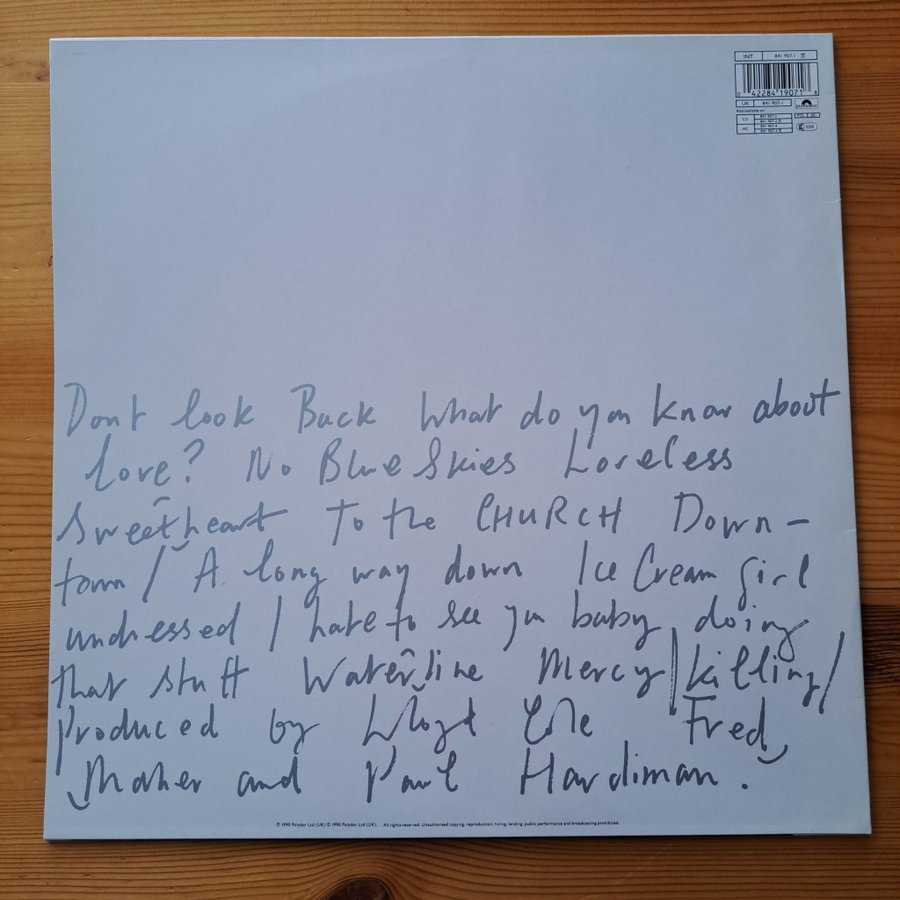 INT 841 907-1
0 42284 19071 8
UK 841 907-1
CD
MC
Dont look Back What do you know about
Love? No Blue Skies Loveless
Sweetheart To the CHURCH Down-
town / A long way down Ice Cream girl
undressed I hate to see you baby doing
that stuff Waterline Mercy/killing/
produced by Lloyd Cole Fred
Maher and Paul Hardiman.
℗ 1990 Polydor Ltd (UK) © 1990 Polydor Ltd (UK). All rights reserved. Unauthorised copying, reproduction, hiring, lending, public performance and broadcasting prohibited.